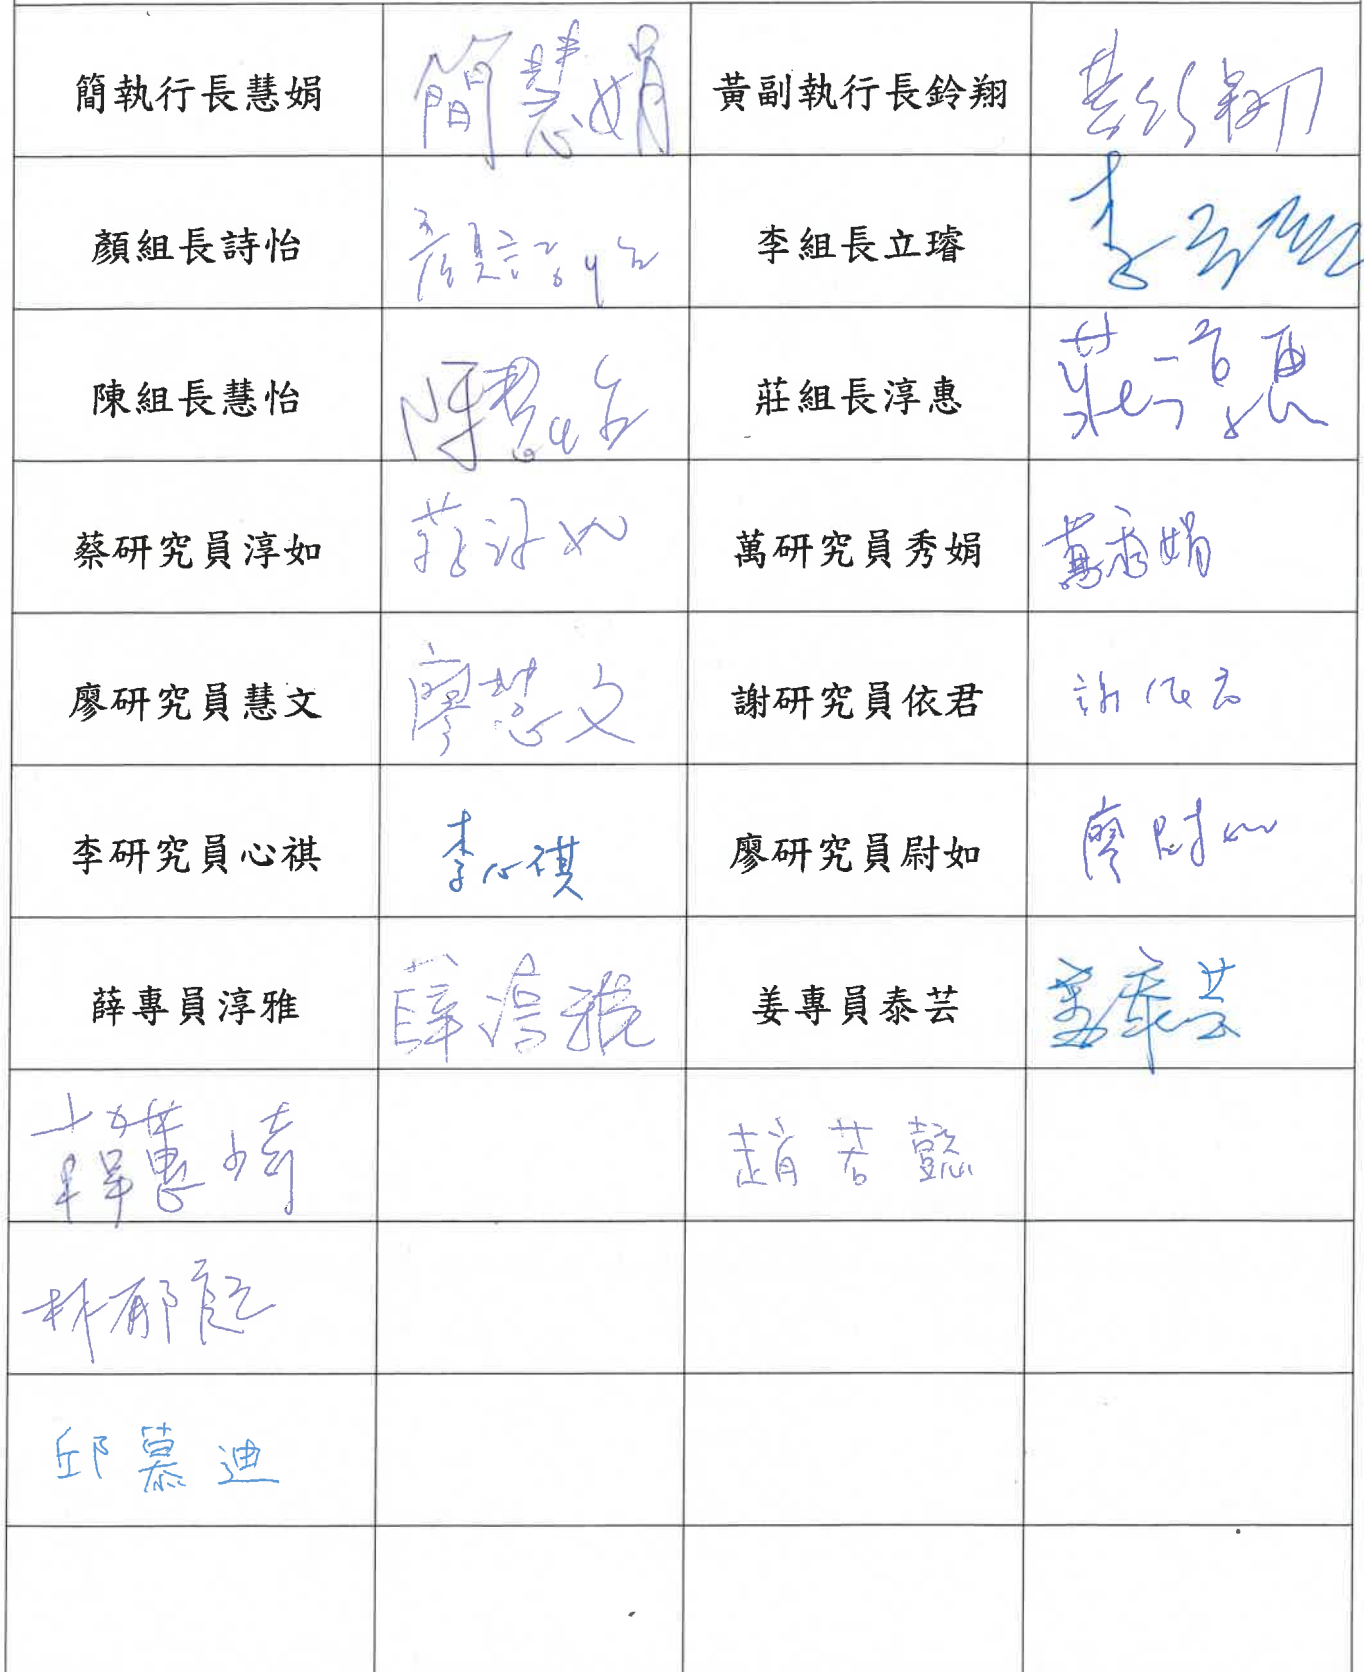 簡執行長慧娟 簡慧娟 黃副執行長鈴翔 黃鈴翔
顏組長詩怡 顏詩怡 李組長立璿 李立璿
陳組長慧怡 陳慧怡 莊組長淳惠 莊淳惠
蔡研究員淳如 蔡淳如 萬研究員秀娟 萬秀娟
廖研究員慧文 廖慧文 謝研究員依君 謝依君
李研究員心祺 李心祺 廖研究員尉如 廖尉如
薛專員淳雅 薛淳雅 姜專員泰芸 姜泰芸
趙若懿
林郁
邱慕迪